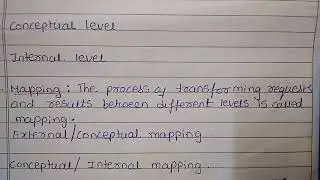 Conceptual level
Internal level
Mapping : The process of transforming requests
and results between different levels is called
mapping.
External/Conceptual mapping
Conceptual/Internal mapping.